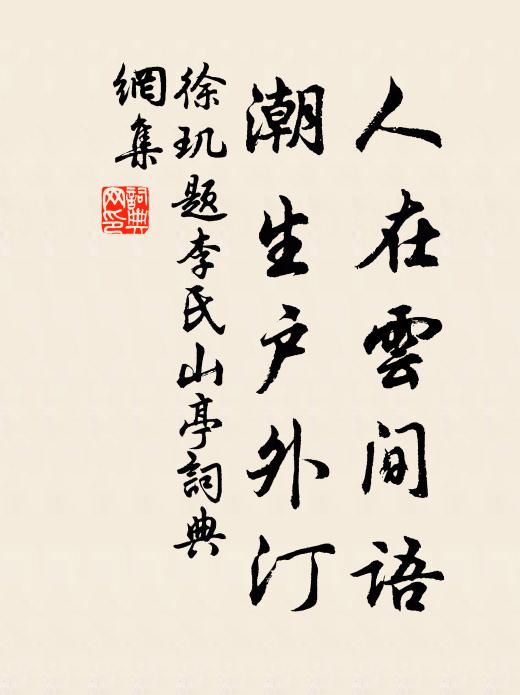 人在雲间語
潮生户外汀
徐玑题李氏山亭詞典
網集
詞典網印